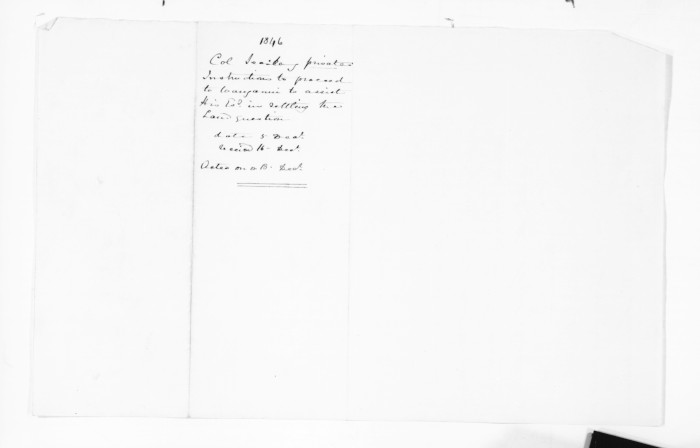 1846
Col private
Instructions to proceed
to Wanganui to assist
His Exy in settling the
Land question
date 5 Decr.
Decr.
Acted on Decr.